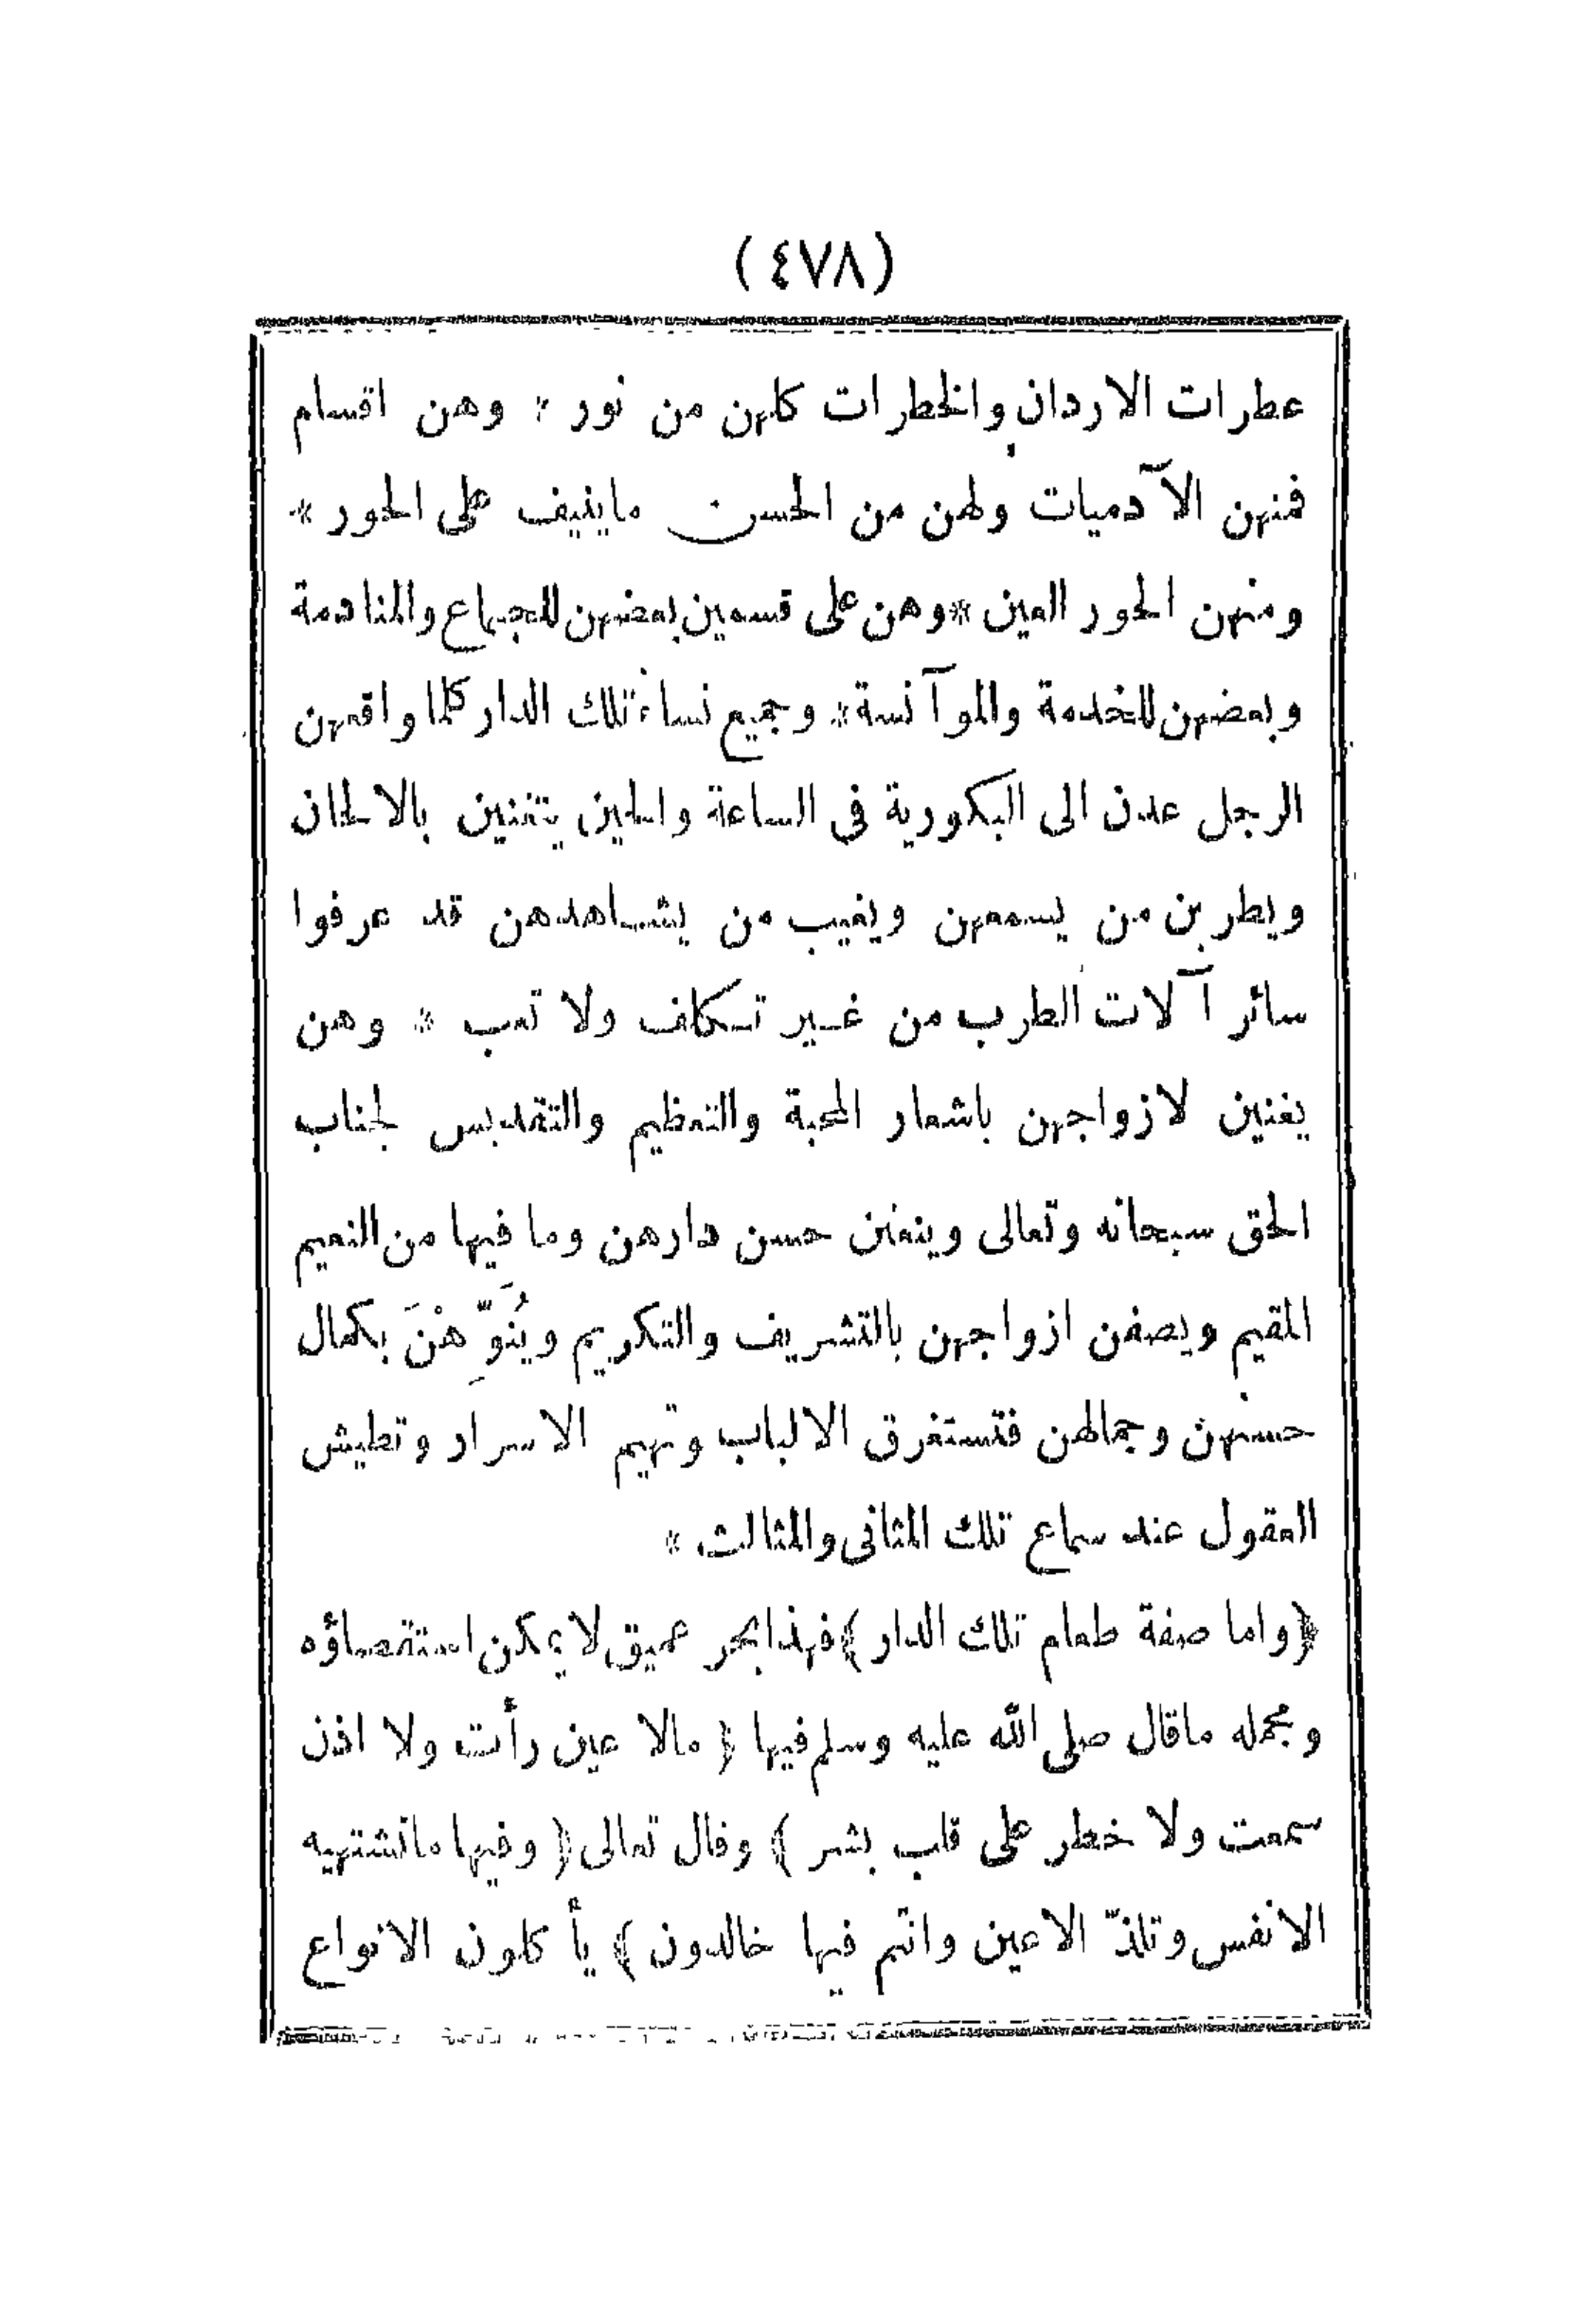 (٤٧٨)
عطرات الاردان والخطرات كلهن من نور * وهن اقسام
فمنهن الآدميات ولهن من الحسن ماينيف على الحور *
ومنهن الحور العين * وهن على قسمين بعضهن للجماع والمنادمة
وبعضهن للخدمة والموآنسة * وجميع نساء تلك الدار كلما واقعهن
الرجل عدن الى البكورية فى الساعة والحين يتغنين بالالحان
ويطربن من يسمعهن ويغيب من يشاهدهن قد عرفوا
سائر آلات الطرب من غير تكلف ولا تعب * وهن
يغنين لازواجهن باشعار المحبة والتعظيم والتقديس لجناب
الحق سبحانه وتعالى وينعتن حسن دارهن وما فيها من النعيم
المقيم ويصفن ازواجهن بالتشريف والتكريم ويُنَوِّهْنَ بكمال
حسنهن وجمالهن فتستغرق الالباب وتهيم الاسرار وتطيش
العقول عند سماع تلك المثانى والمثالث *
﴿واما صفة طعام تلك الدار﴾ فهذا بحر عميق لا يمكن استقصاؤه
ومجمله ماقال صلى الله عليه وسلم فيها ﴿ مالا عين رأت ولا اذن
سمعت ولا خطر على قلب بشر ﴾ وقال تعالى ﴿ وفيها ماتشتهيه
الانفس وتلذّ الاعين وانتم فيها خالدون ﴾ يأكلون الانواع